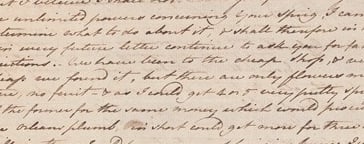 unlimited powers concerning Your Sprig, I can
determine what to do about it, & shall therefore in
in every future letter continue to ask you for far
We have been to the cheap Shop, & ve
cheap we found it, but there are only flowers m
no fruit & as I could get 4 or 5 very pretty spr
the former for the same money which would
Orleans plumb, in short could get more for three